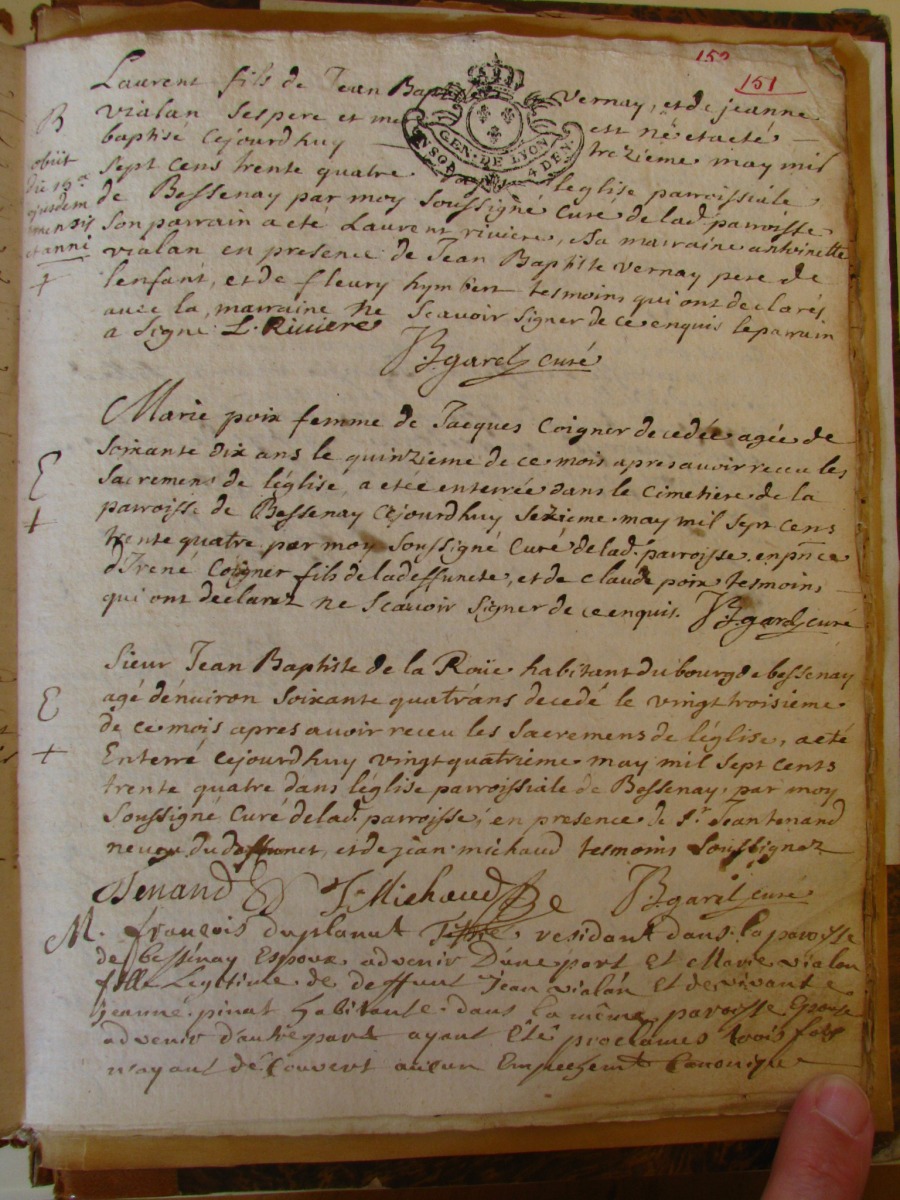 152
151
Laurent fils de Jean Baptiste Vernay, et de jeanne
vialan ses pere et mere est né et a eté
baptisé cejourdhuy trezieme may mil
sept cens trente quatre dans léglise parroissiale
de Bessenay par moy soussigné Curé de lad. parroisse
son parrain a eté Laurent riviere, sa marraine antoinette
vialan en presence de Jean Baptiste vernay pere de
lenfant, et de fleury hymbert tesmoins qui ont declarés
avec la marraine ne scavoir signer de ce enquis le parrain
a signé L. Riviere
B
obiit
die 13a
ejusdem
mensis
et anni
+
GEN. DE LYON
4 DEN.
garel curé
Marie poix femme de Jacques Coigner decedée agée de
soixante dix ans le quinzieme de ce mois apres avoir receu les
sacremens de léglise, a etee enterrée dans le cimetiere de la
parroisse de Bessenay cejourdhuy sezieme may mil sept cens
trente quatre par moy soussigné Curé de lad. parroisse en pnce
d'Irené Coigner fils de la deffuncte, et de claude poix tesmoins
qui ont declarez ne scavoir signer de ce enquis. garel curé
E
+
Sieur Jean Baptiste de la Roüe habitant du bourg de bessenay
agé dénviron soixante quatrans decedé le vingt troisieme
de ce mois apres avoir receu les sacremens de léglise, a eté
Enterré cejourdhuy vingt quatrieme may mil sept cents
trente quatre dans léglise parroissiale de Bessenay, par moy
soussigné Curé de lad. parroisse, en presence de Sr. Jean tenand
neveu du deffunct, et de jean michaud tesmoins soussignez
E
+
Tenand J. Michaud garel curé
M. françois duplanut residant dans la paroisse
de bessenay Espoux advenir Dune part Et Marie vialon
fille Legitime de deffunt Jean vialon Et de vivante
jeanne pinat habitante dans la même paroisse Epouse
advenir d'autre part ayant Eté proclamés trois fois
n'ayant découvert aucun Empechemt Canonique